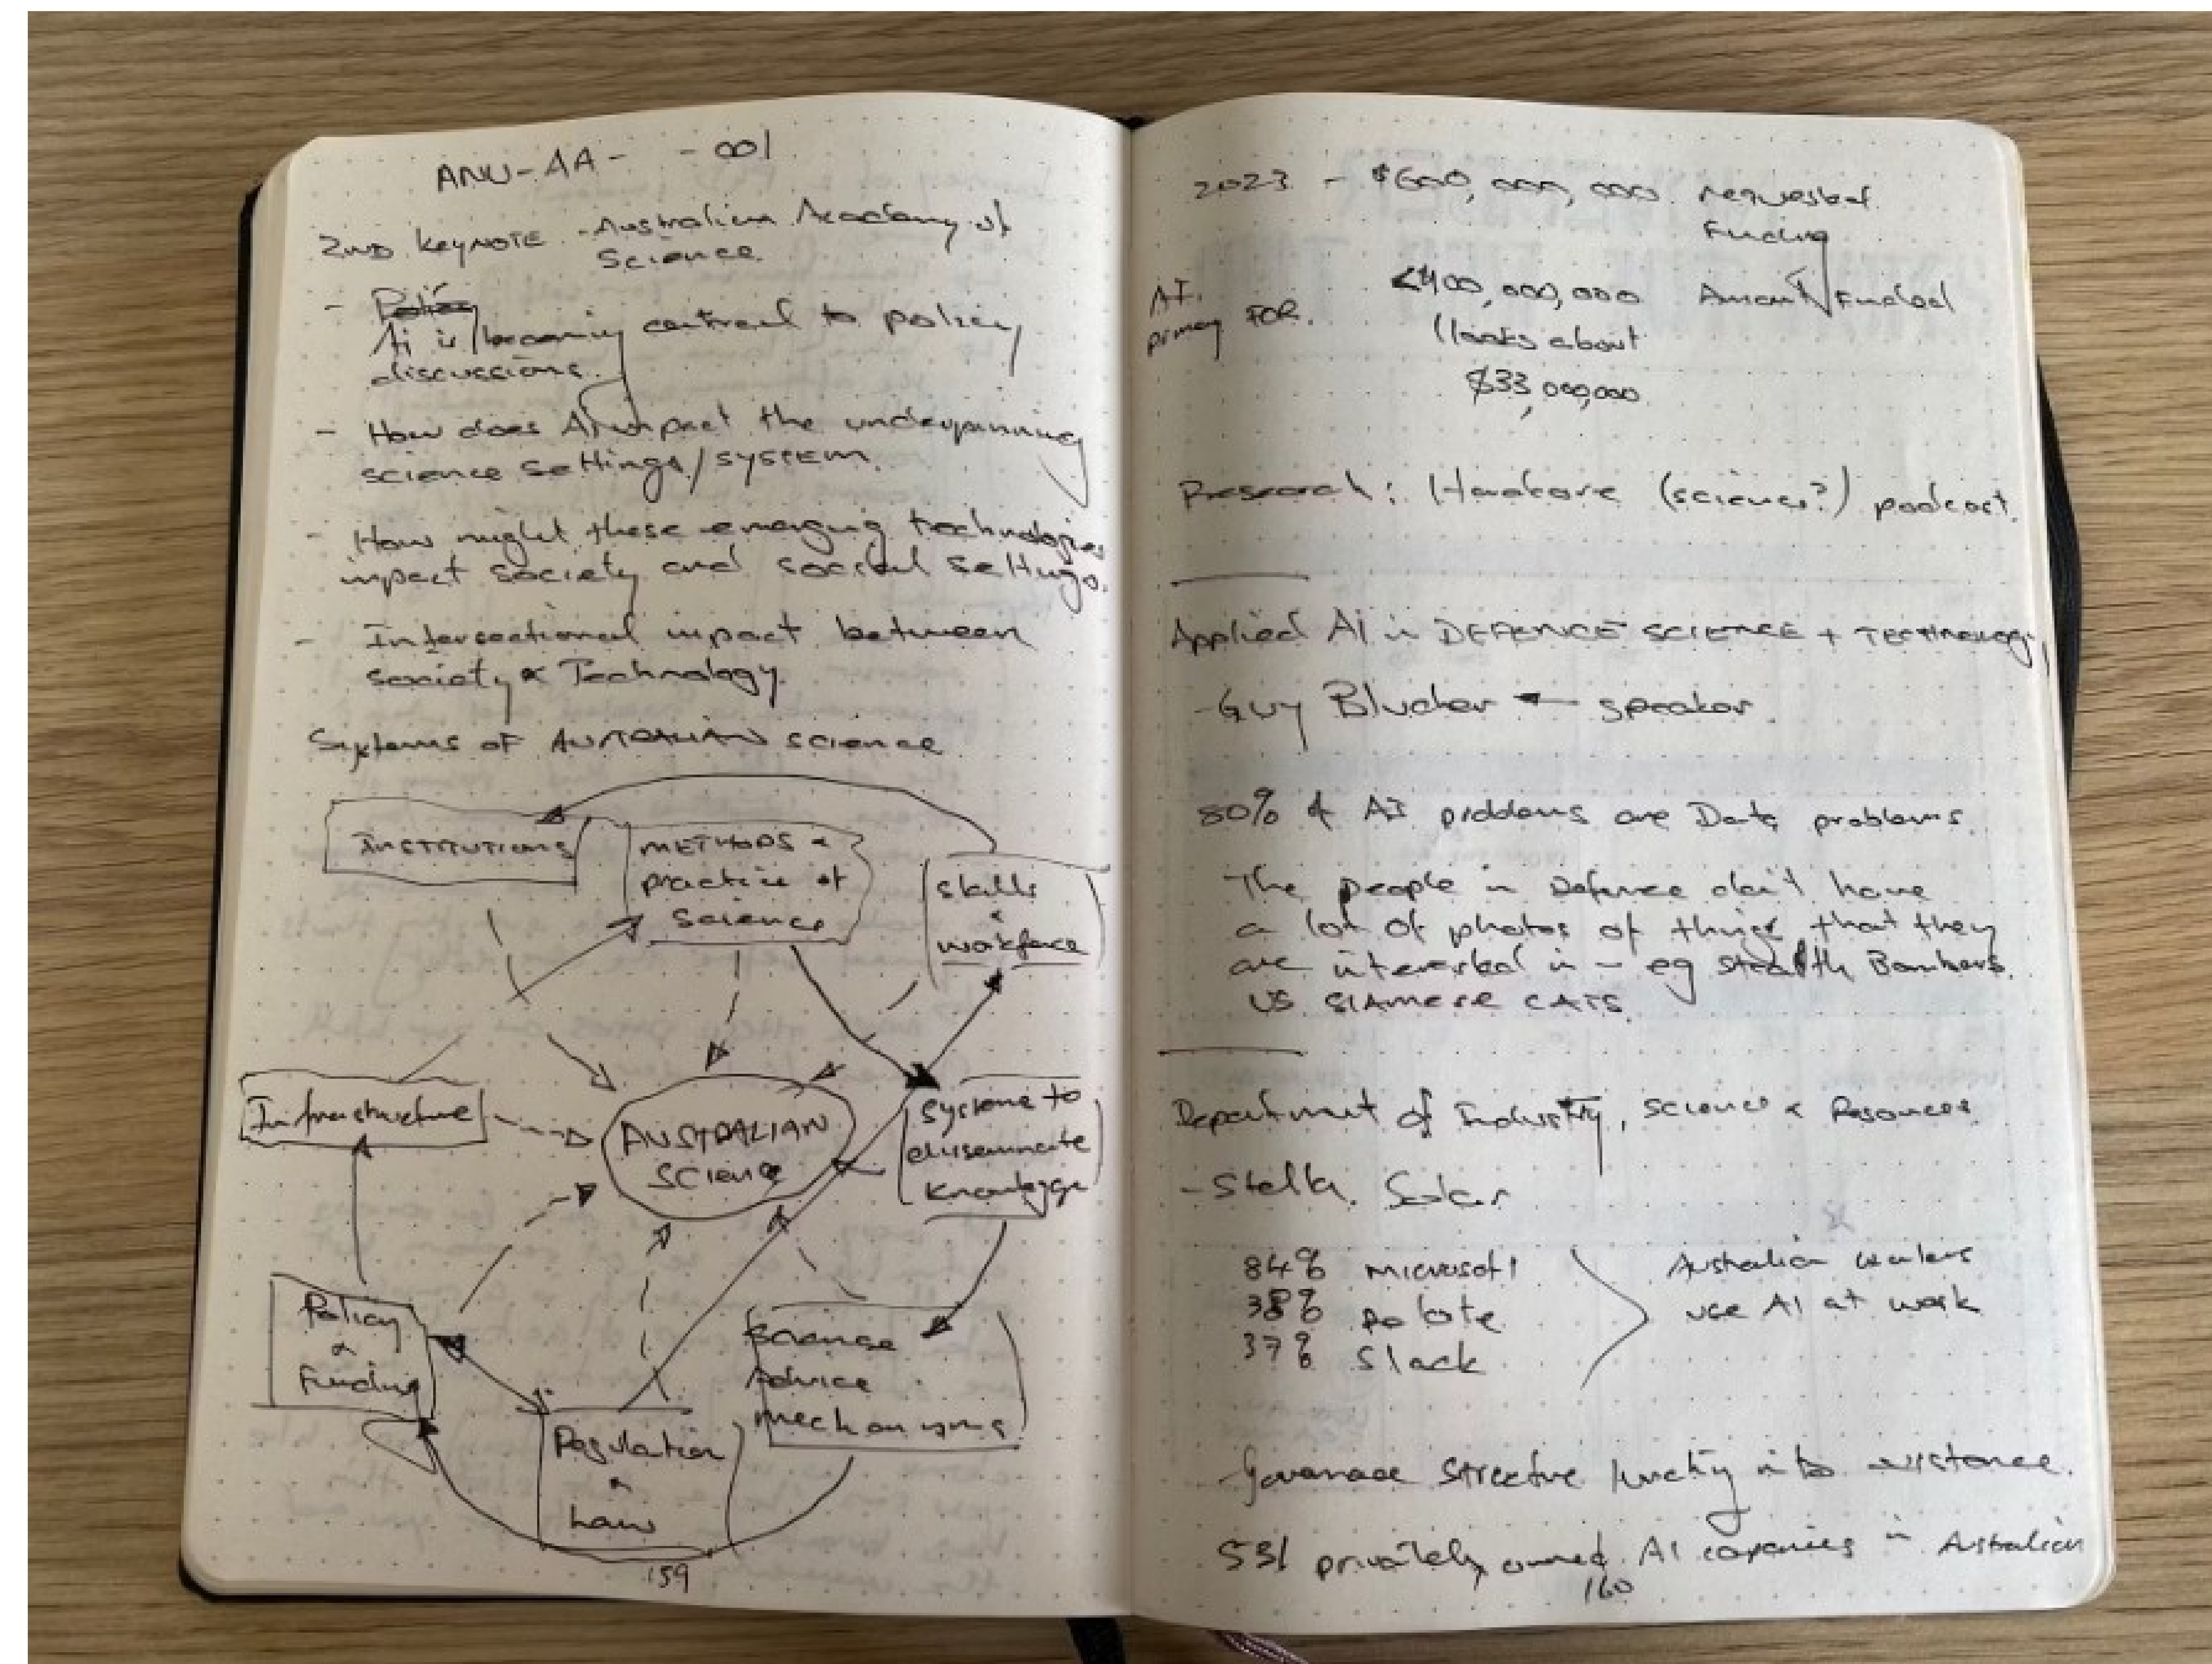 ANU-AA- -001
2ND KEYNOTE - Australian Academy of
Science
- Policy
Ai is becoming central to policy
discussions.
- How does AI impact the underpinning
science settings/system.
- How might these emerging technologies
impact society and social settings.
- Intersectional impact between
society & Technology.
Systems of AUSTRALIAN science
INSTITUTIONS
METHODS &
practice of
Science
skills
&
workforce
Infrastructure
AUSTRALIAN
SCIENCE
Systems to
disseminate
knowledge
Policy
&
Funding
Regulation
&
Law
Science
Advice
mechanisms
159
2023 - $600,000,000 requested
Funding
AI.
primary FOR.
<400,000,000 Amount Funded
(looks about
$33,000,000
Research: Hardcore (science?) podcast.
Applied AI in DEFENCE SCIENCE + TECHNOLOGY
- Guy Blucher ← speaker
80% of AI problems are Data problems.
The people in Defence don't have
a lot of photos of things that they
are interested in - eg Stealth Bombers.
VS SIAMESE CATS
Department of Industry, Science & Resources
- Stella Solar
84% Microsoft
38% Deloitte
37% Slack
Australian workers
use AI at work
- Governance Structure into existence.
privately owned AI companies in Australian
160